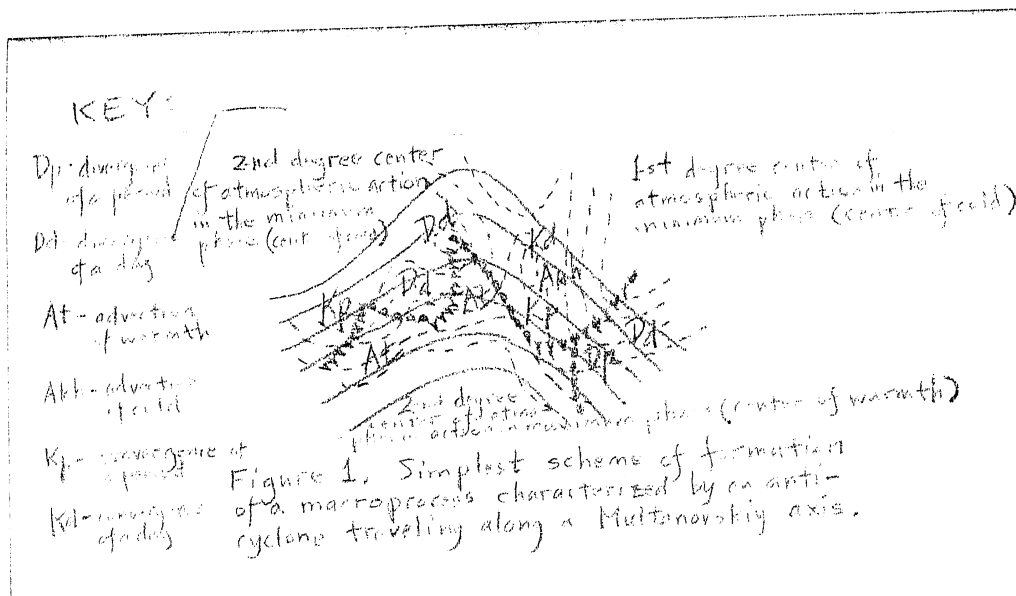 KEY:
Dp - divergence
of a period
Dd - divergence
of a day
At - advection
of warmth
Akh - advection
of cold
Kp - convergence of
a period
Kd - convergence
of a day
2nd degree center
of atmospheric action
in the minimum
phase (cent. of cold)
1st degree center of
atmospheric action in the
minimum phase (center of cold)
Dd
Kd
Dd
At
Kp
Kp
Dd
At
Dp
2nd degree
center of atmos-
pheric action in maximum phase (center of warmth)
Figure 1. Simplest scheme of formation
of a macroprocess characterized by an anti-
cyclone traveling along a Multanovskiy axis.